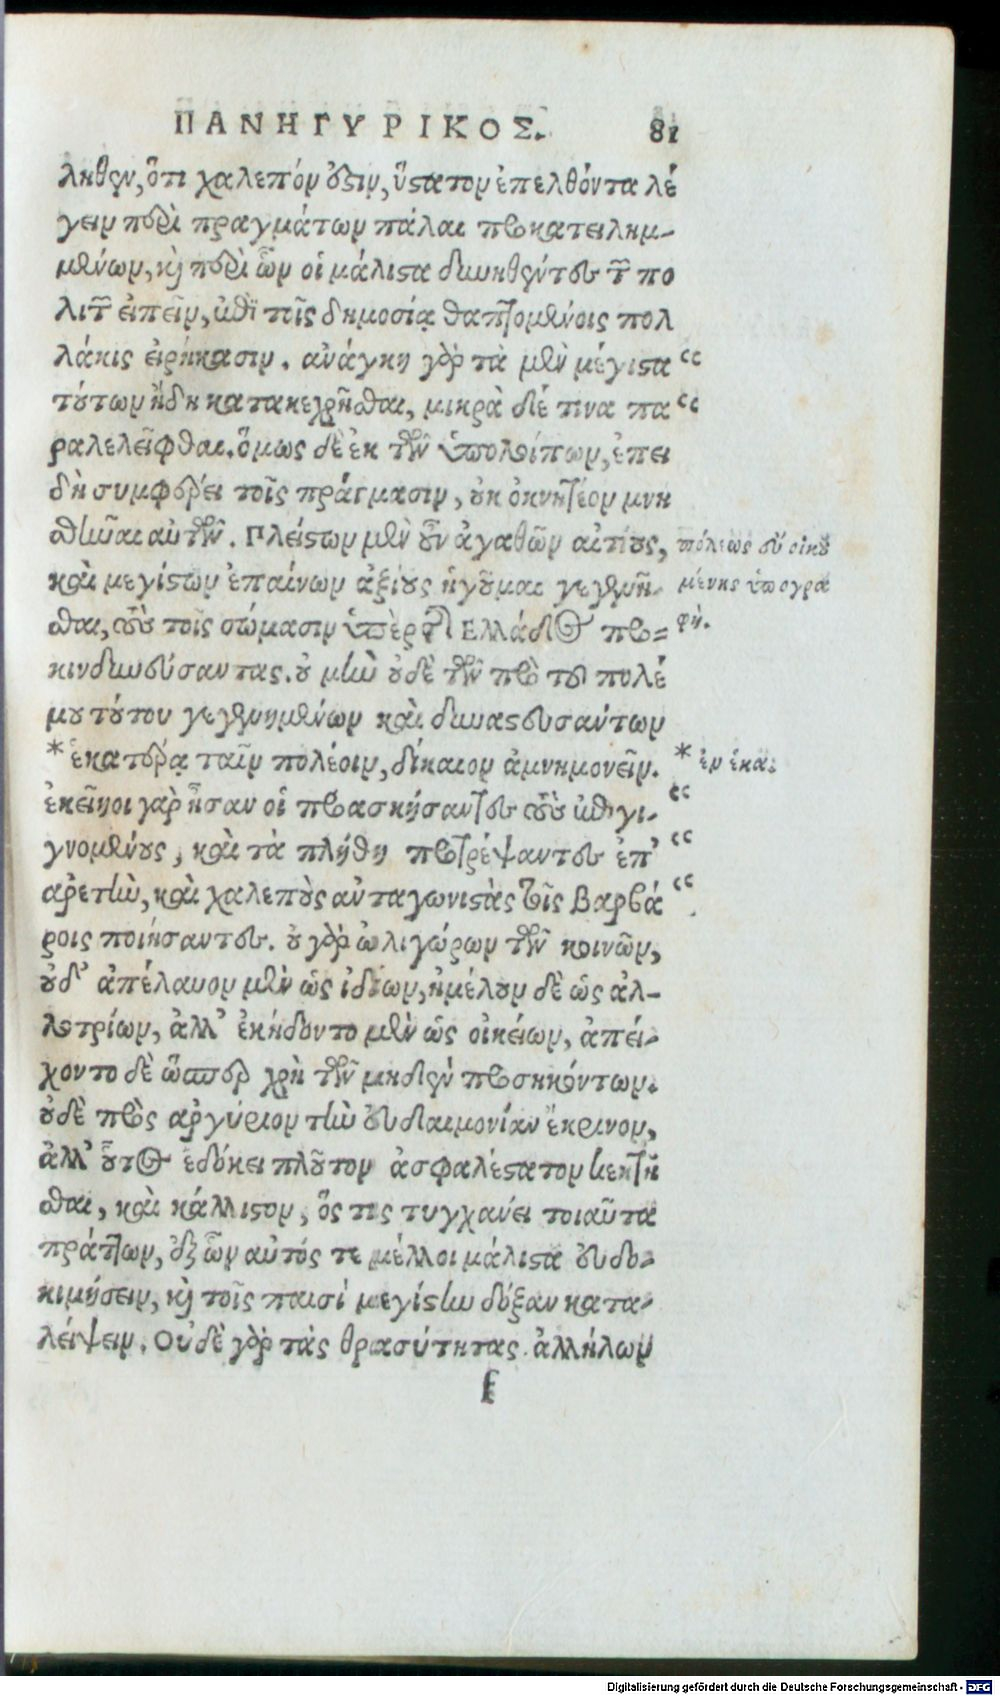 ΠΑΝΗΓΥΡΙΚΟΣ. 81
ληθεν, ὅτι χαλεπόν ἐστιν, ὕστατον ἐπελθόντα λέ
γειν περὶ πραγμάτων πάλαι προκατειλημ-
μένων, καὶ περὶ ὧν οἱ μάλιστα δυνηθέντες τῶν πο
λιτῶν εἰπεῖν, ἐπὶ τοῖς δημοσίᾳ θαπτομένοις πολ
λάκις εἰρήκασιν. ἀνάγκη γὰρ τὰ μὲν μέγιστα “
τούτων ἤδη κατακεχρῆσθαι, μικρὰ δέ τινα πα “
ραλελεῖφθαι. ὅμως δὲ ἐκ τῶν ὑπολοίπων, ἐπει
δὴ συμφέρει τοῖς πράγμασιν, οὐκ ὀκνητέον μνη
σθῆναι αὐτῶν. Πλείστων μὲν οὖν ἀγαθῶν αἰτίους,
καὶ μεγίστων ἐπαίνων ἀξίους ἡγοῦμαι γεγενῆ-
σθαι, τοὺς τοῖς σώμασιν ὑπὲρ τῆς Ἑλλάδος προ-
κινδυνεύσαντας. οὐ μὴν οὐδὲ τῶν πρὸ τοῦ πολέ
μου τούτου γεγενημένων καὶ δυναστευσάντων
* ἑκατέρᾳ ταῖν πολέοιν, δίκαιον ἀμνημονεῖν.
ἐκεῖνοι γὰρ ἦσαν οἱ προασκήσαντες τοὺς ἐπιγι- “
γνομένους, καὶ τὰ πλήθη προτρέψαντες ἐπ’ “
ἀρετὴν, καὶ χαλεποὺς ἀνταγωνιστὰς τοῖς Βαρβά “
ροις ποιήσαντες. οὐ γὰρ ὠλιγώρων τῶν κοινῶν,
οὐδ’ ἀπέλαυον μὲν ὡς ἰδίων, ἠμέλουν δὲ ὡς ἀλ-
λοτρίων, ἀλλ’ ἐκήδοντο μὲν ὡς οἰκείων, ἀπεί-
χοντο δὲ ὥσπερ χρὴ τῶν μηδὲν προσηκόντων.
οὐδὲ πρὸς ἀργύριον τὴν εὐδαιμονίαν ἔκρινον,
ἀλλ’ οὗτος ἐδόκει πλοῦτον ἀσφαλέστατον κεκτῆ
σθαι, καὶ κάλλιστον, ὅς τις τυγχάνει τοιαῦτα
πράττων, ἐξ ὧν αὐτός τε μέλλοι μάλιστα εὐδο-
κιμήσειν, καὶ τοῖς παισὶ μεγίστην δόξαν κατα-
λείψειν. Οὐδὲ γὰρ τὰς θρασύτητας ἀλλήλων
f
πόλεως εὖ οἰκου
μένης ὑπογρα
φή.
* ἐν ἑκα.
Digitalisierung gefördert durch die Deutsche Forschungsgemeinschaft - DFG